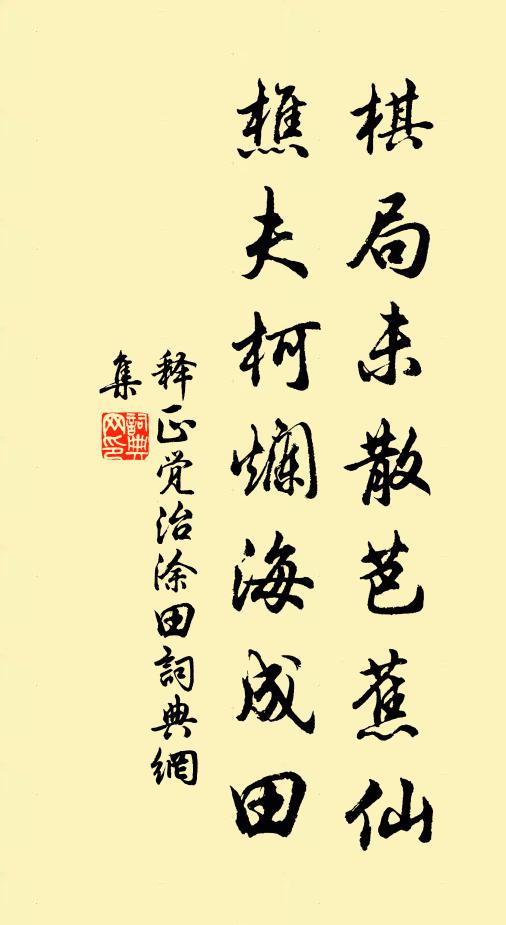 棋局未散芭蕉仙
樵夫柯爛海成田
释正觉治涂田詞典網
集
詞典網印